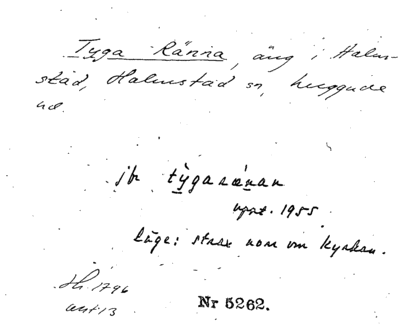 Tyga Ränna, äng i Halm-
stad, Halmstad sn, Luggude
hd.
jfr tỳgaränan
uppt. 1955
läge: strax nom om kyrkan.
Sk. 1796
akt 13
Nr 5262.